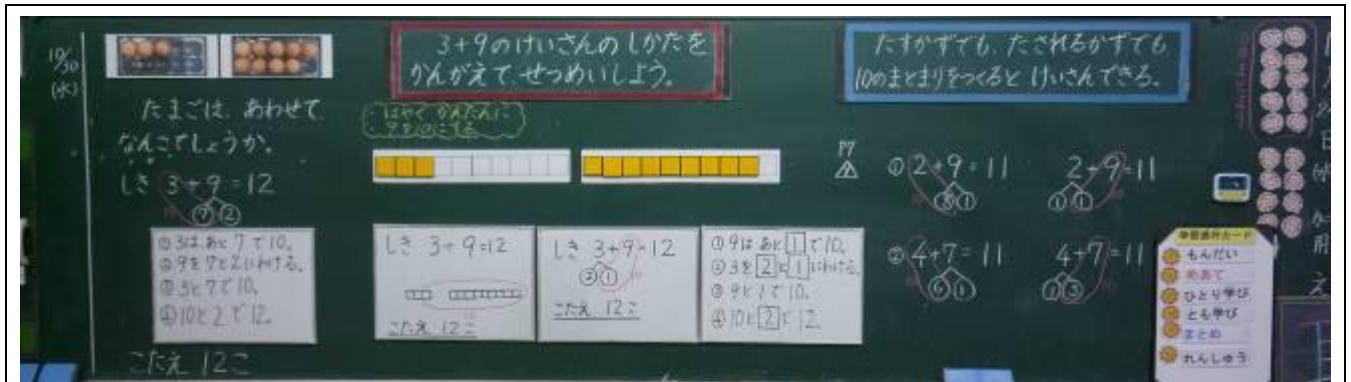 10/30
(水)
たまごは、あわせて
なんこでしょうか。
しき 3+9=12
10 ⑦ ②
①3は、あと7で10。
②9を7と2にわける。
③3と7で10。
④10と2で12。
こたえ 12こ
3+9のけいさんのしかたを
かんがえて、せつめいしよう。
はやく かんたんに
9を10にする
しき 3+9=12
こたえ 12こ
しき 3+9=12
② ①
こたえ 12こ
①9はあと1で10。
②3を2と1にわける。
③9と1で10。
④10と2で12
たすかずでも、たされるかずでも
10のまとまりをつくると けいさんできる。
P7
① 2+9=11
⑧ ①
2+9=11
① ①
② 4+7=11
⑥ ①
4+7=11
① ③
学習進行カード
もんだい
めあて
ひとり学び
とも学び
まとめ
れんしゅう